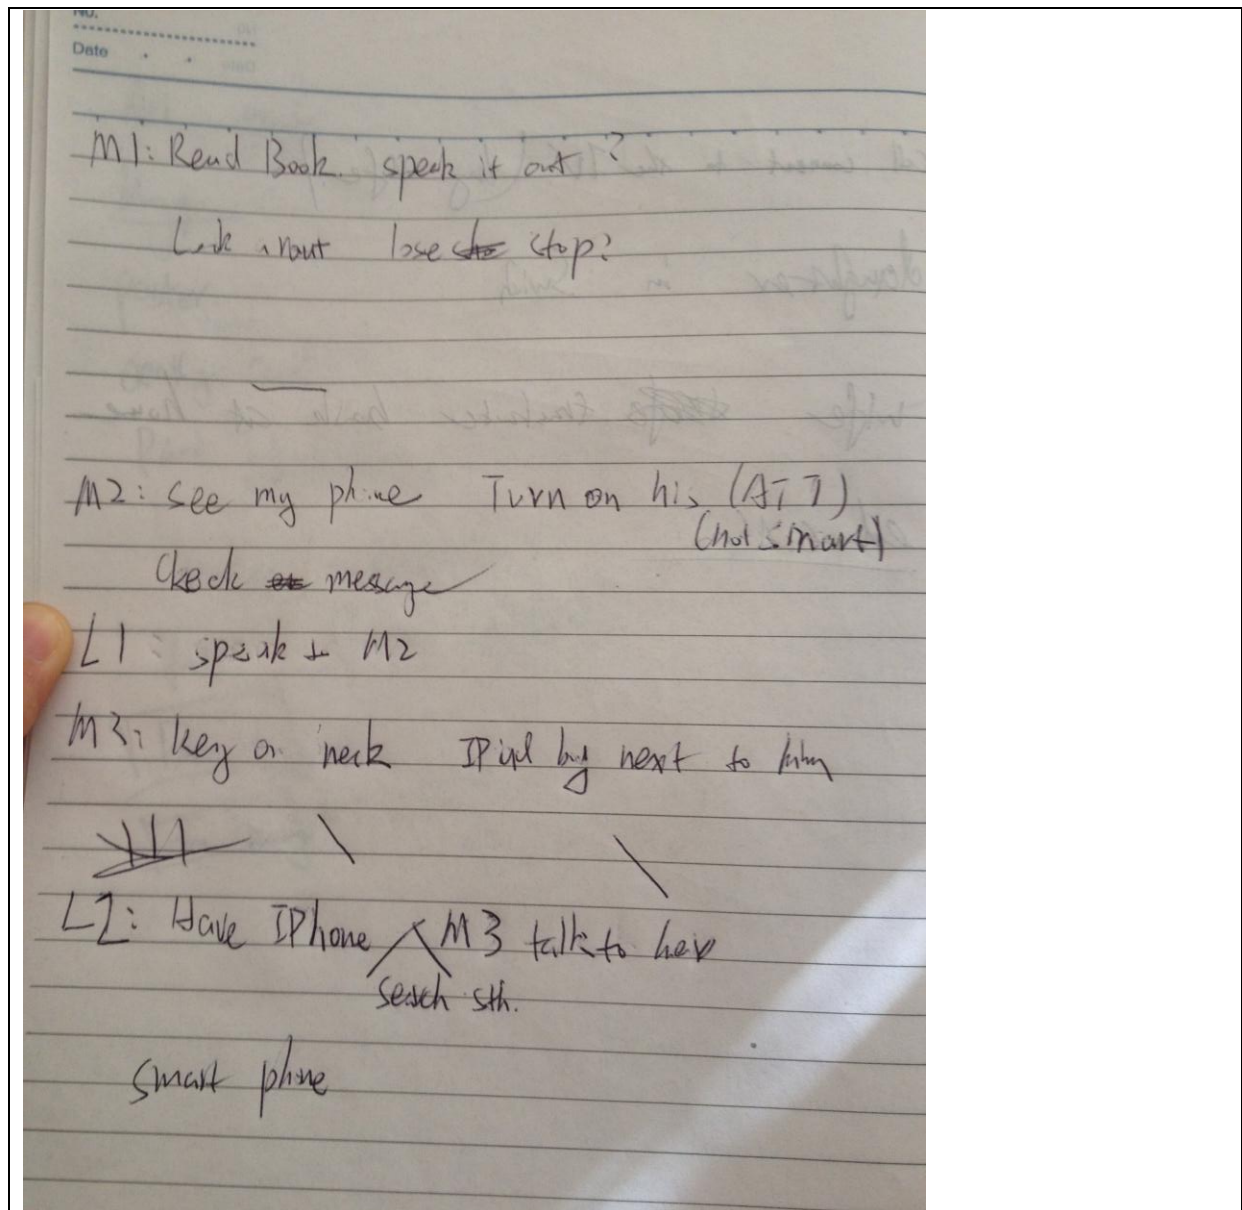 No.
Date
M1: Read Book. speak it out?
lose stop?
M2: see my phone Turn on his (ATT)
(not smart)
Check message
L1: speak to M2
M3: key on neck next to him
L2: Have IPhone M3 talk to her
search sth.
smart phone